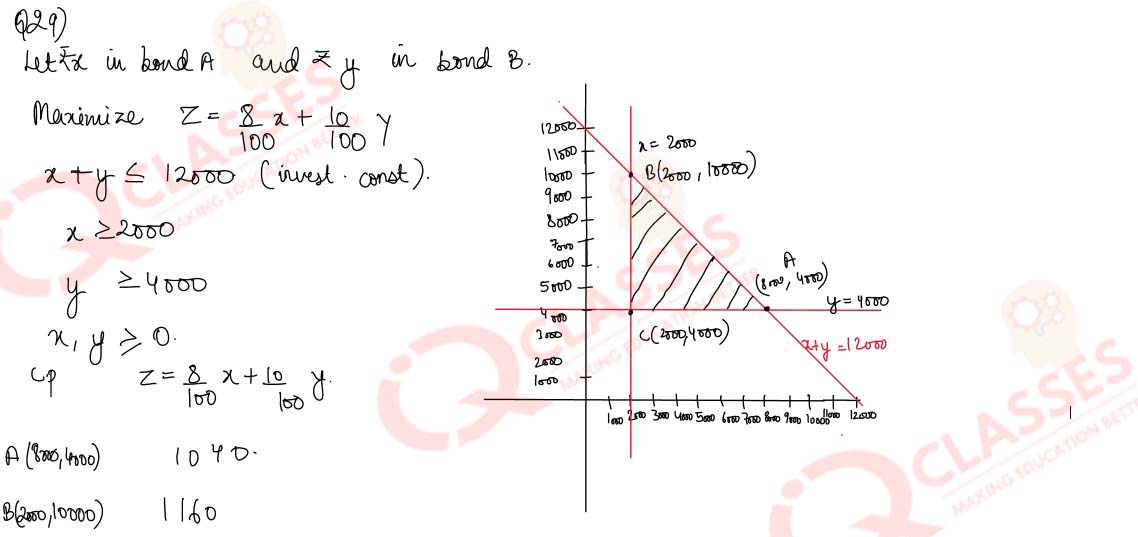 Q29)
Let ₹x in bond A and ₹ y in bond B.
Maximize Z = 8/100 x + 10/100 y
x + y ≤ 12000 (invest. const).
x ≥ 2000
y ≥ 4000
x, y ≥ 0.
Cp Z = 8/100 x + 10/100 y.
A (8000, 4000) 1040.
B(2000, 10000) 1160
12000
11000
10000
9000
8000
7000
6000
5000
4000
3000
2000
1000
x = 2000
B(2000, 10000)
A
(8000, 4000)
y = 4000
C(2000,4000)
x+y = 12000
1000 2000 3000 4000 5000 6000 7000 8000 9000 10000 11000 12000
IQ CLASSES
MAKING EDUCATION BETTER
IQ CLASSES
MAKING EDUCATION BETTER
CLASSES
MAKING EDUCATION BETTER